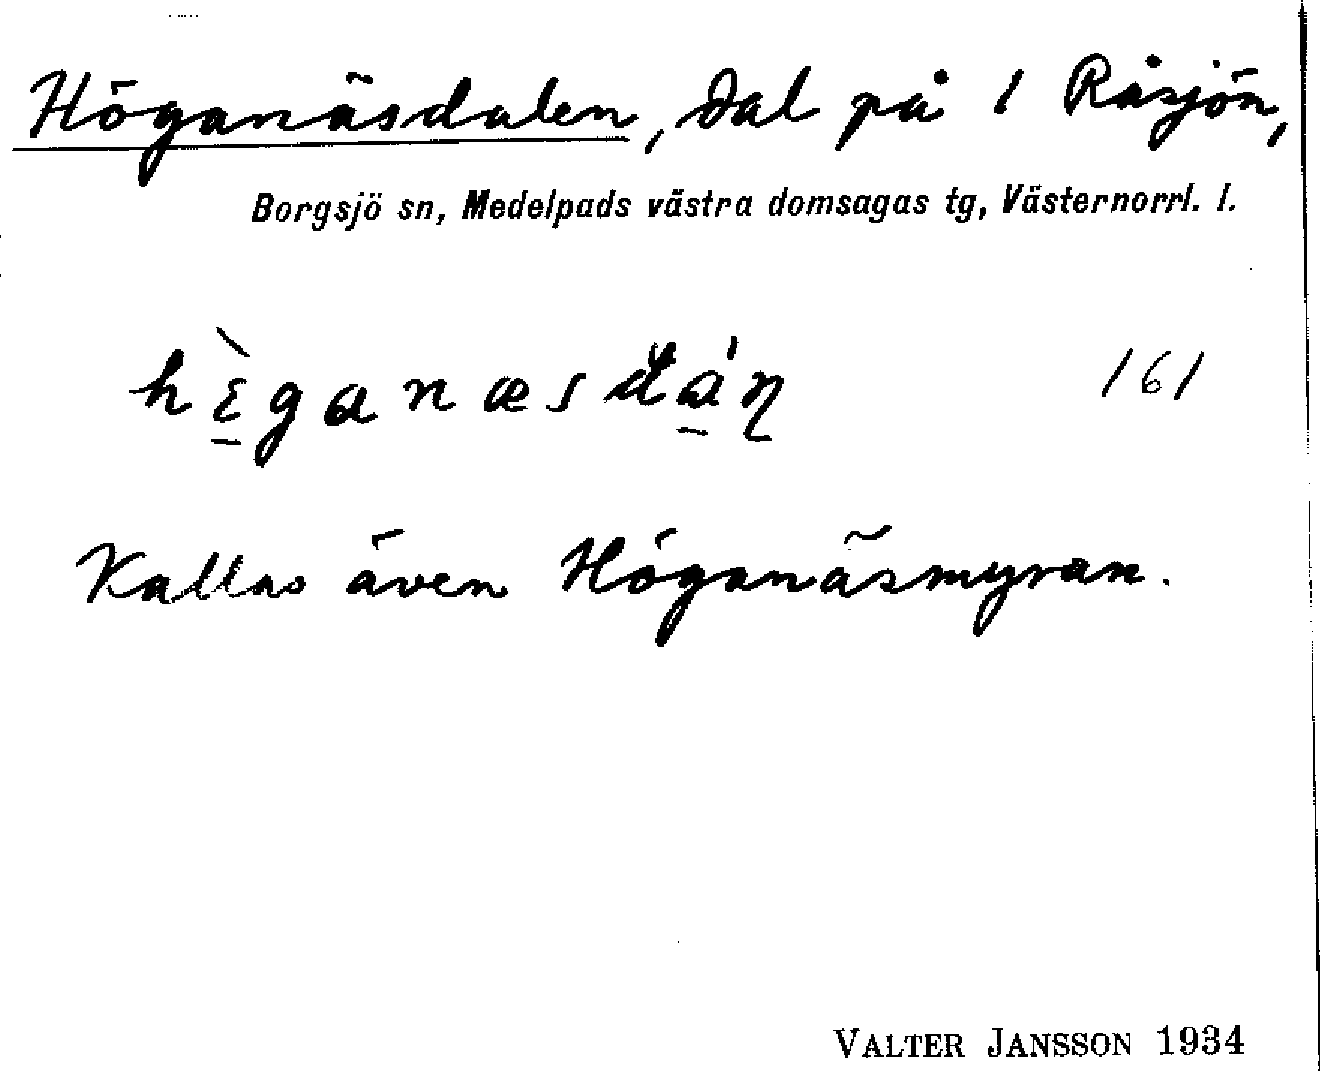 Höganäsdalen, dal på 1 Råsjön,
Borgsjö sn, Medelpads västra domsagas tg, Västernorrl. l.
161
Kallas även Höganäsmyran.
VALTER JANSSON 1934